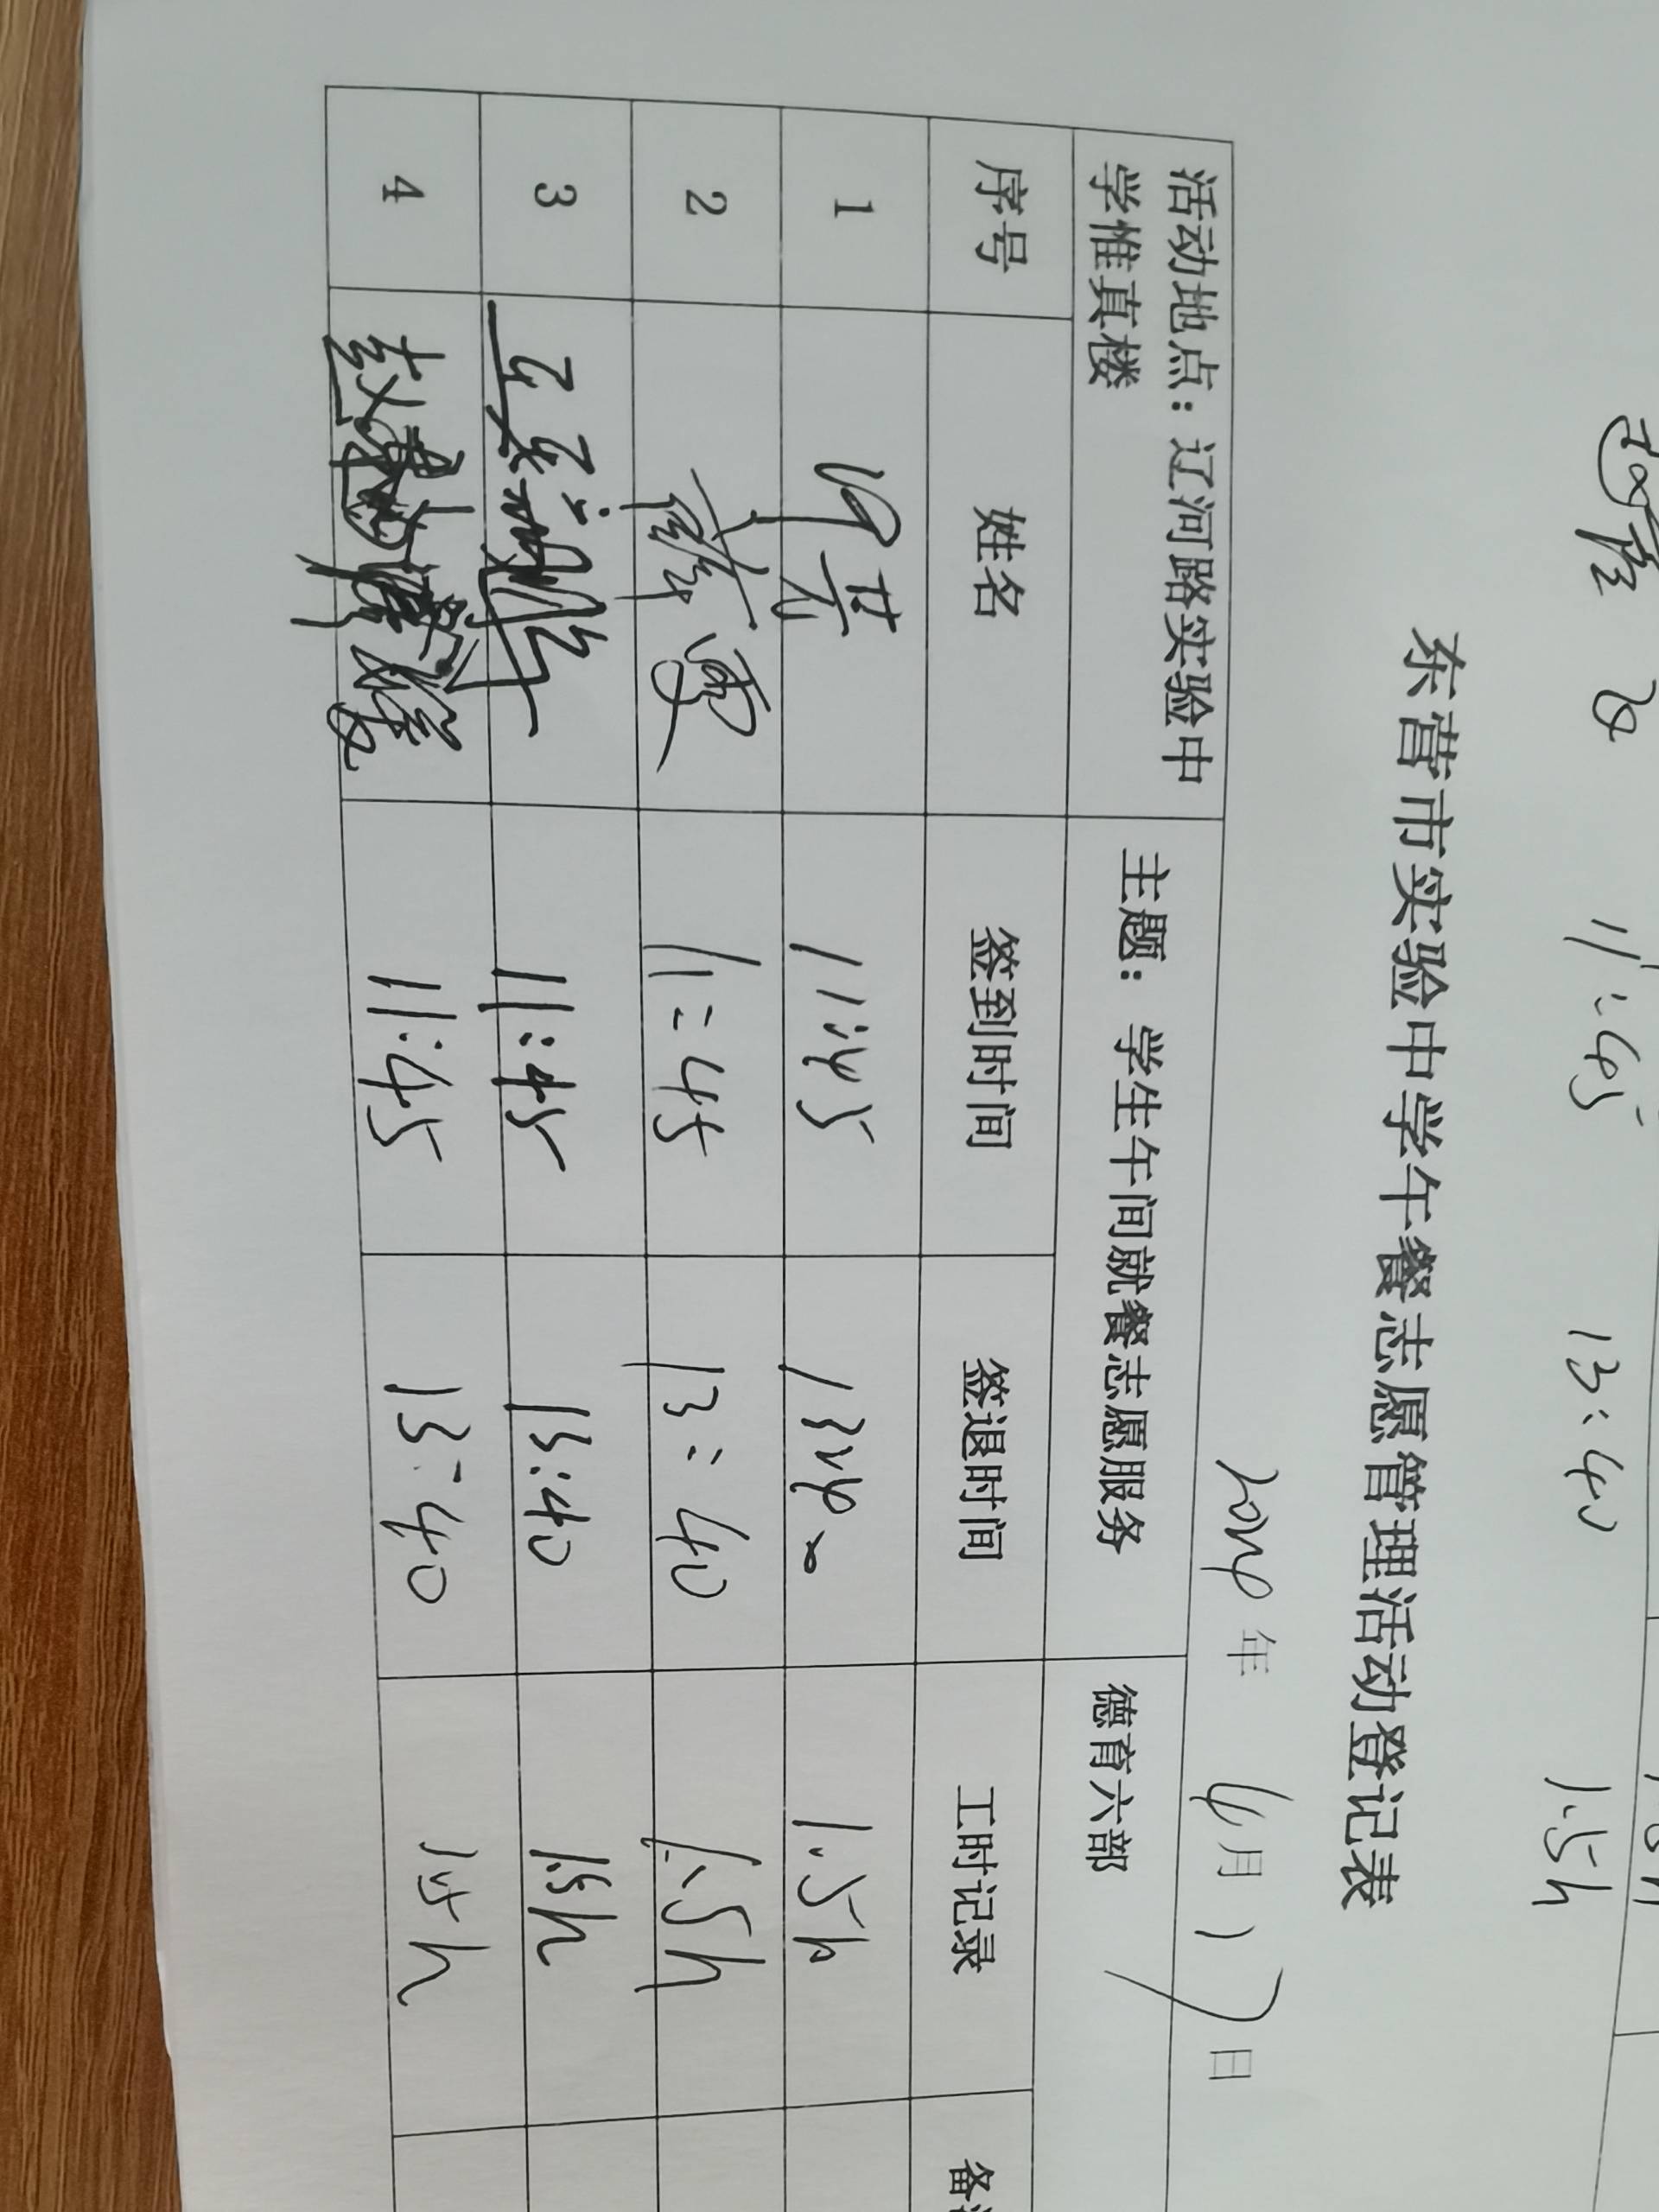 11:45 13:40 1.5h
东营市实验中学午餐志愿管理活动登记表
2024年 4月17日
活动地点：辽河路实验中学惟真楼 主题：学生午间就餐志愿服务 德育六部
序号 姓名 签到时间 签退时间 工时记录
1 11:45 13:40 1.5h
2 11:45 13:40 1.5h
3 11:45 13:40 1.5h
4 11:45 13:40 1.5h